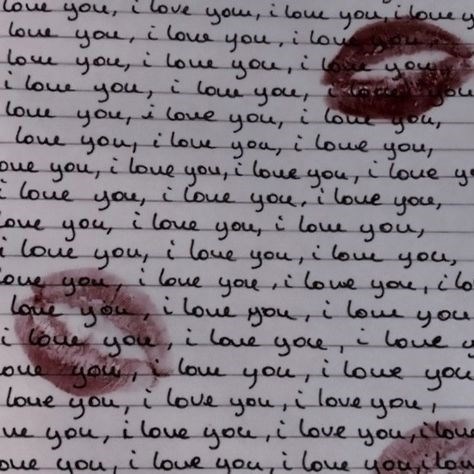 love you, i love you, i love you, i love y
love you, i love you, i love you
love you, i love you, i love you,
i love you, i love you, i love you
love you, i love you, i love you,
love you, i love you, i love you,
ove you, i love you, i love you, i love y
i love you, i love you, i love you,
love you, i love you, i love you,
i love you, i love you, i love you,
love you, i love you, i love you, i lo
love you, i love you, i love you
i love you, i love you, i love y
ove you, i love you, i love you
love you, i love you, i love you,
ve you, i love you, i love you, i love
ove you, i love you, i love you, i love